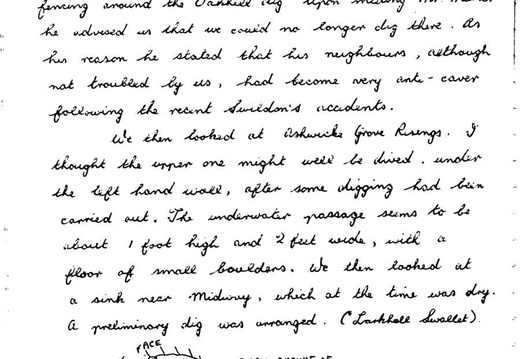 fencing around the Oakhill dig. Upon meeting Mr.
he advised us that we could no longer dig there. As
his reason he stated that his neighbours, although
not troubled by us, had become very anti-caver
following the recent Swildon's accidents.
We then looked at Ashwicke Grove Risings. I
thought the upper one might well be dived, under
the left hand wall, after some digging had been
carried out. The underwater passage seems to be
about 1 foot high and 2 feet wide, with a
floor of small boulders. We then looked at
a sink near Midway, which at the time was dry.
A preliminary dig was arranged. (Larkhall Swallet).
FACE